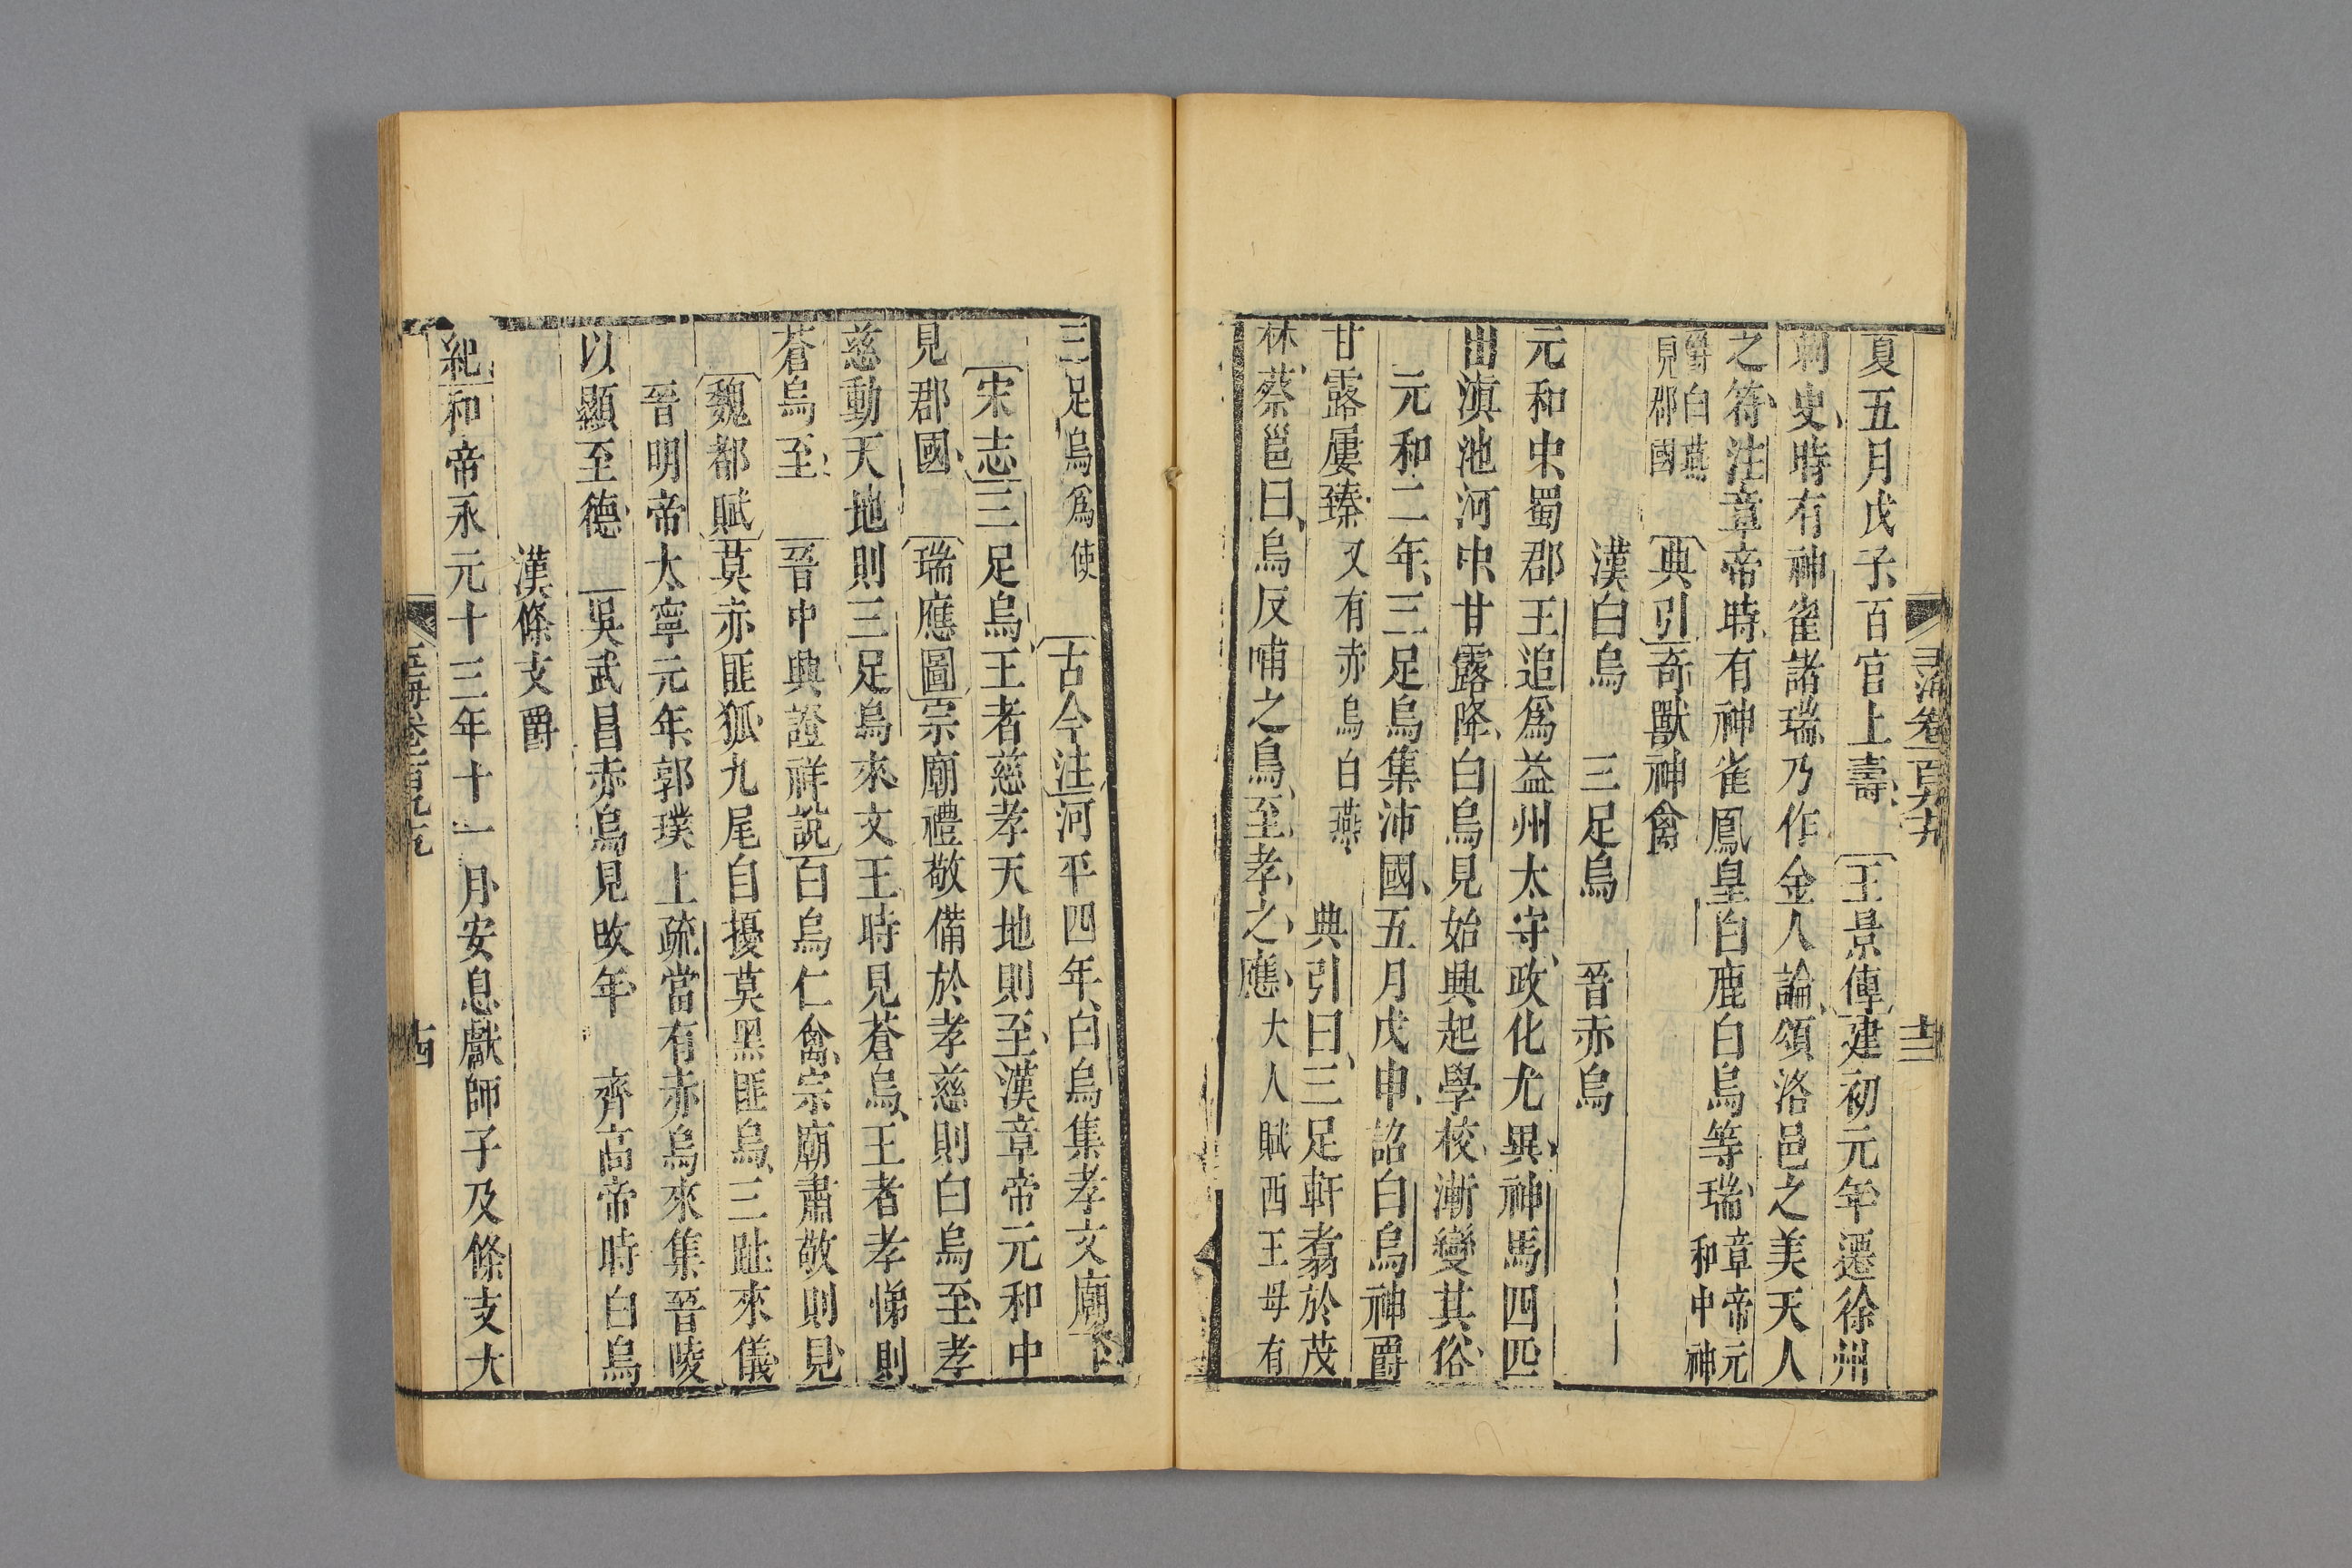 夏五月戊子百官上壽　王景傳建初元年遷徐州
刺史時有神雀諸瑞乃作金人論頌洛邑之美天人
之符注章帝時有神雀鳳皇白鹿白烏等瑞章帝元和中神
爵白燕見郡國　典引奇獸神禽
漢白烏　三足烏　晉赤烏
元和中蜀郡王追爲益州太守政化尤異神馬四匹
出滇池河中甘露降白烏見始興起學校漸變其俗
元和二年三足烏集沛國五月戊申詔白烏神爵
甘露屢臻又有赤烏白燕　典引曰三足軒翥於茂
林蔡邕曰烏反哺之鳥至孝之應大人賦西王母有
三足烏爲使　古今注河平四年白烏集孝文廟
宋志三足烏王者慈孝天地則至漢章帝元和中
見郡國　瑞應圖宗廟禮敬備於孝慈則白烏至孝
慈動天地則三足烏來文王時見蒼烏王者孝悌則
蒼烏至　晉中興證祥說百烏仁禽宗廟肅敬則見
魏都賦莫赤匪狐九尾自擾莫黑匪烏三趾來儀
晉明帝太寧元年郭璞上疏當有赤烏來集晉陵
以顯至德　吳武昌赤烏見改年　齊高帝時白烏
漢條支爵
紀和帝永元十三年十一月安息獻師子及條支大